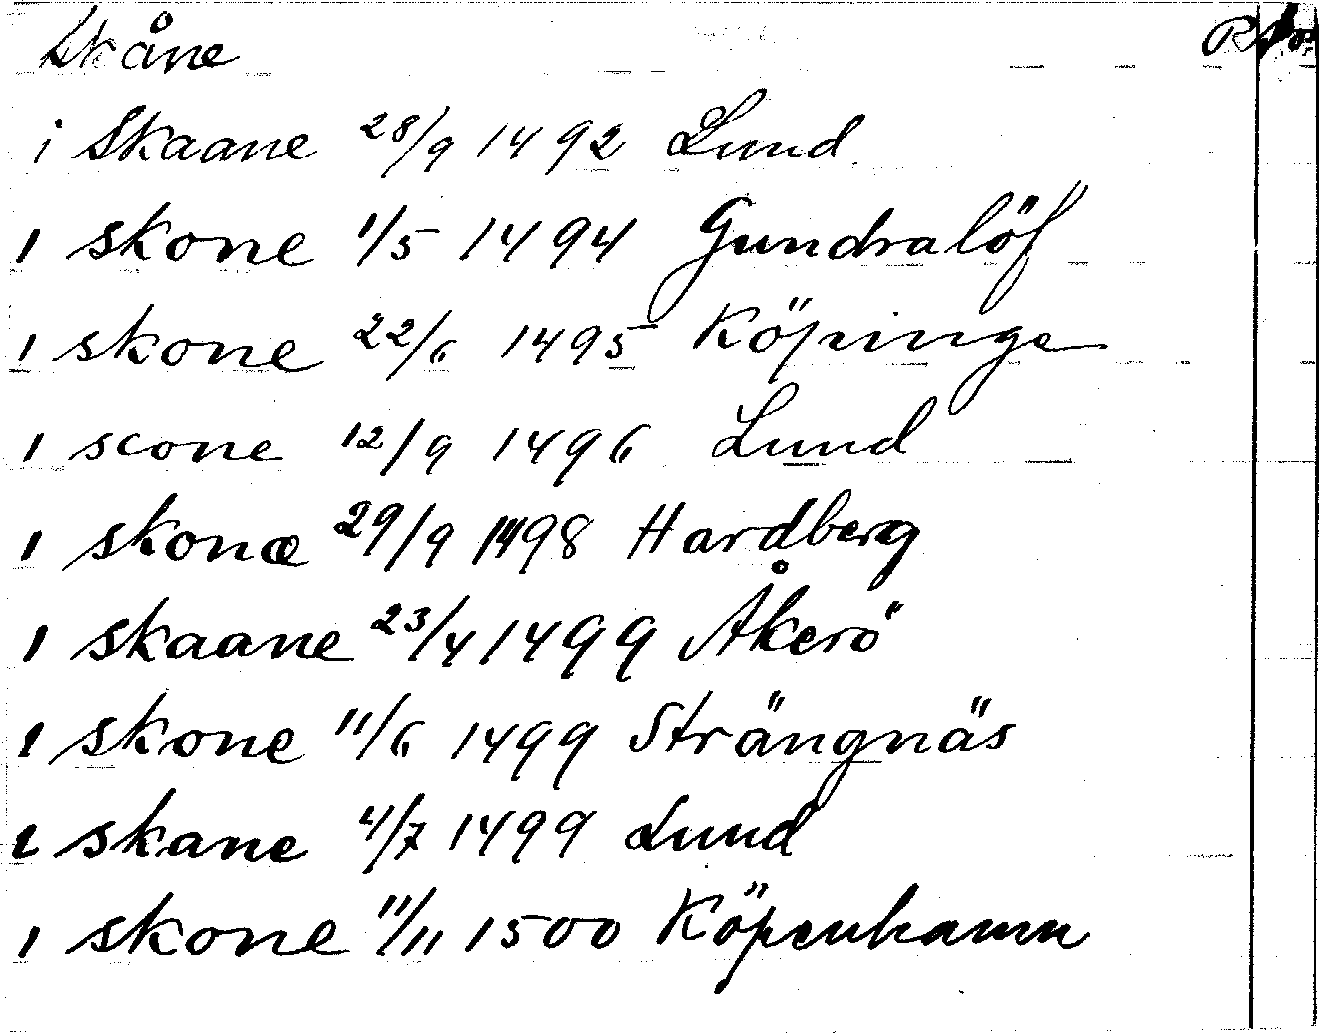 Skåne
i Skaane 28/9 1492 Lund
i skone 1/5 1494 Gundralöf
i skone 22/6 1495 Köpinge
i scone 12/9 1496 Lund
i skonæ 29/9 1498 Hardberg
i skaane 23/4 1499 Åkerö
i skone 11/6 1499 Strängnäs
i skane 4/7 1499 Lund
i skone 11/11 1500 Köpenhamn